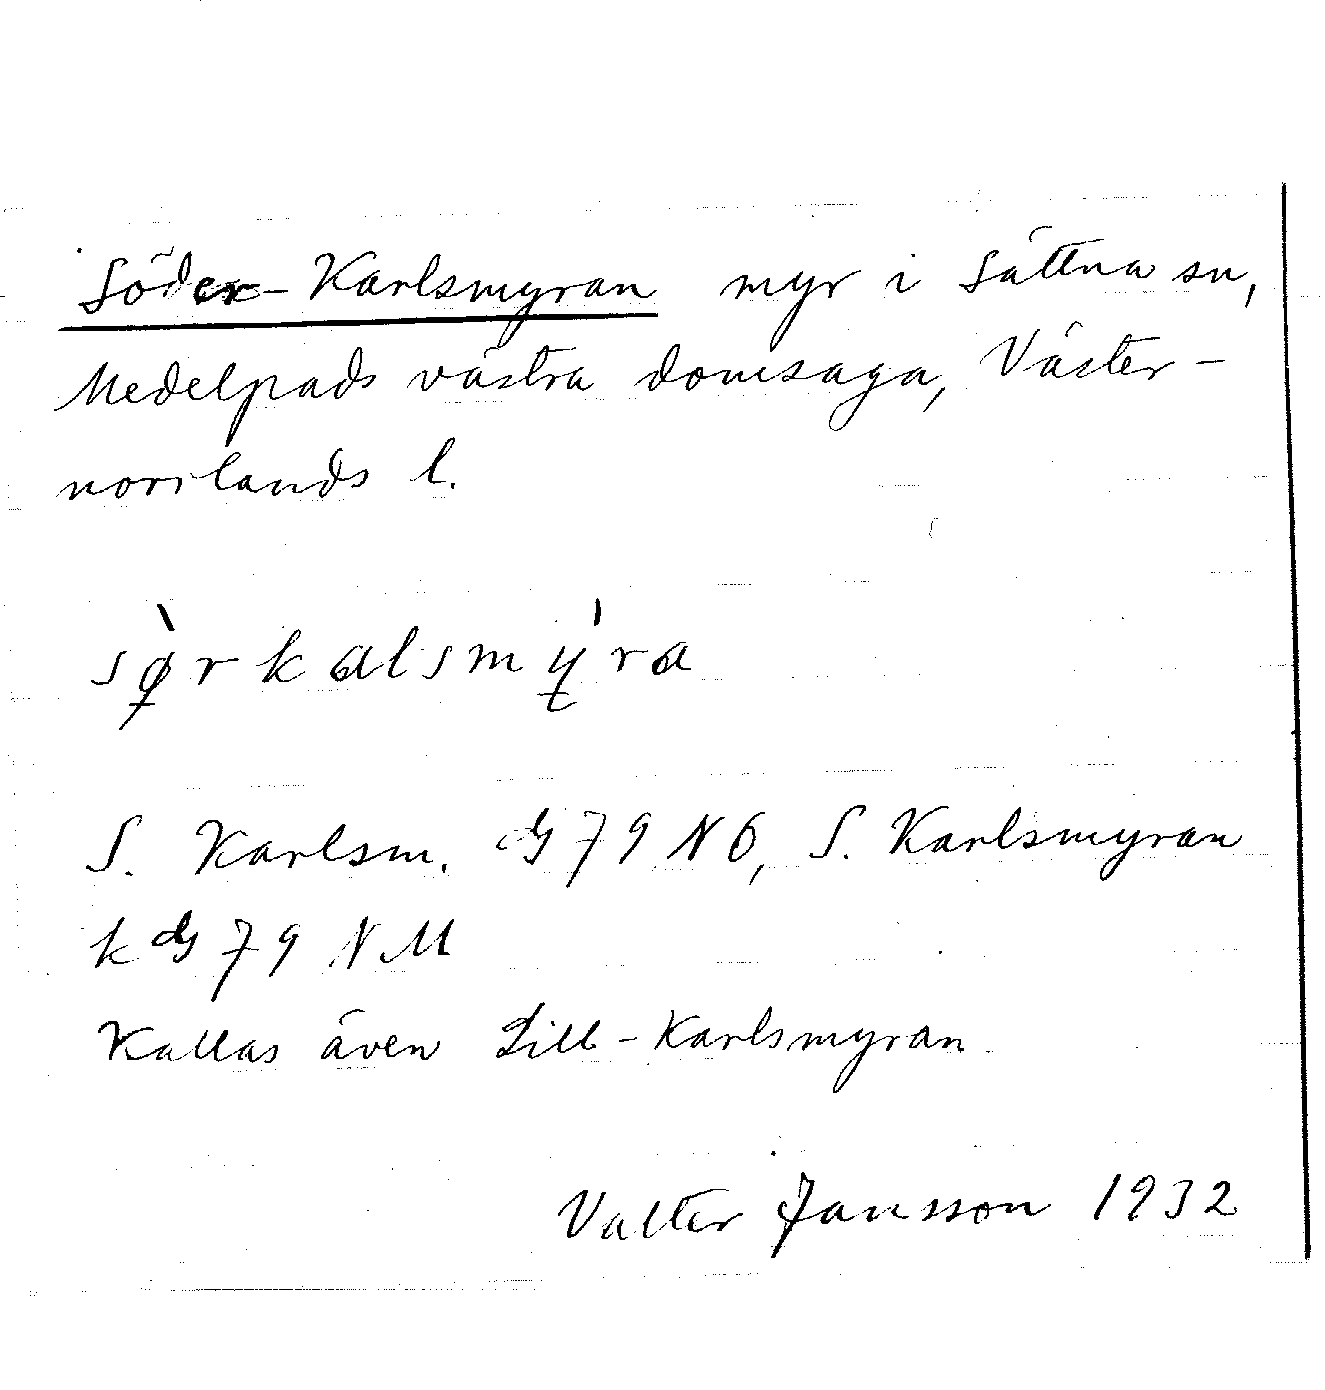 Söder-Karlsmyran myr i Sättna sn,
Medelpads västra domsaga, Väster-
norrlands l.
sø̀rkalsmy̍ra
S. Karlsm. dG 79 NÖ, S. Karlsmyran
k dG 79 NM
Kallas även Lill-Karlsmyran
Valter Jansson 1932